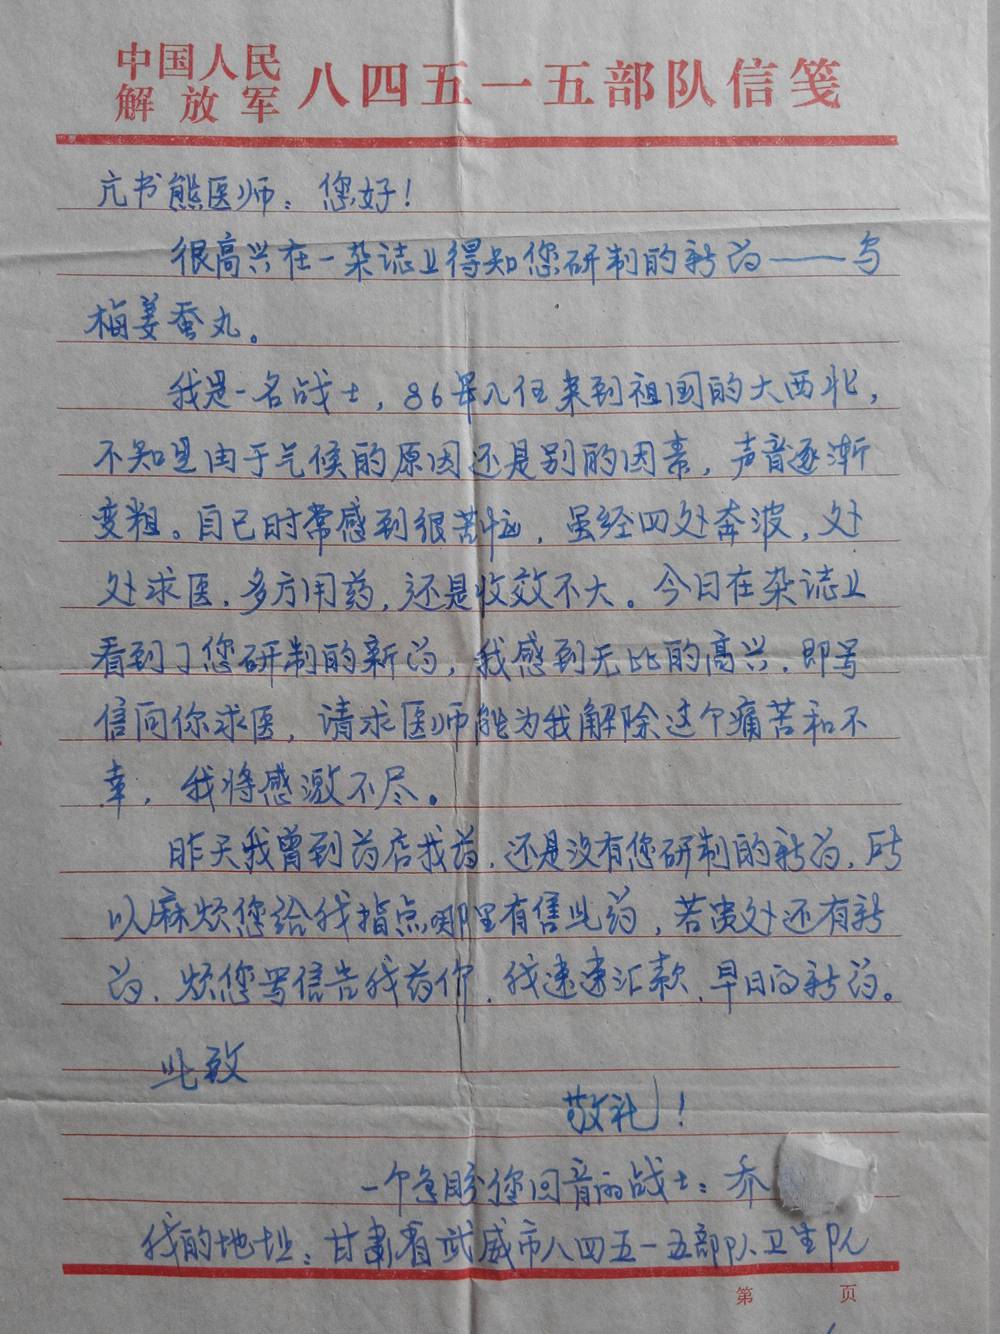 中国人民解放军 八四五一五部队信笺
亢书熊医师：您好！
很高兴在一杂誌上得知您研制的新药——乌
梅姜蚕丸。
我是一名战士，86年入伍来到祖国的大西北，
不知是由于气候的原因还是别的因素，声音逐渐
变粗。自己时常感到很苦恼，虽经四处奔波，处
处求医，多方用药，还是收效不大。今日在杂誌上
看到了您研制的新药，我感到无比的高兴，即写
信向你求医，请求医师能为我解除这个痛苦和不
幸，我将感激不尽。
昨天我曾到药店找药，还是没有您研制的新药，所
以麻烦您给我指点哪里有售此药，若贵处还有新
药，烦您写信告我药价，我速速汇款，早日的新药。
此致
敬礼！
一个急盼您回音的战士：乔
我的地址：甘肃省武威市八四五一五部队卫生队
第 页